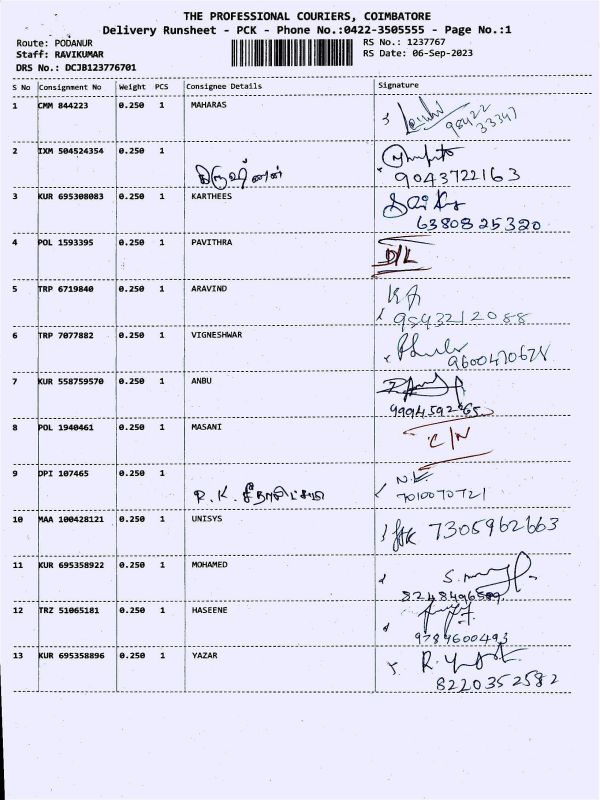 THE PROFESSIONAL COURIERS, COIMBATORE
Delivery Runsheet - PCK - Phone No.:0422-3505555 - Page No.:1
Route: PODANUR RS No.: 1237767
Staff: RAVIKUMAR RS Date: 06-Sep-2023
DRS No.: DCJB123776701
S No Consignment No Weight PCS Consignee Details Signature
1 CMM 844223 0.250 1 MAHARAS
98422
33347
2 IXM 504524354 0.250 1
9043722163
3 KUR 695308083 0.250 1 KARTHEES
6380825320
4 POL 1593395 0.250 1 PAVITHRA D/L
5 TRP 6719840 0.250 1 ARAVIND KA
9843212088
6 TRP 7077882 0.250 1 VIGNESHWAR
9600470678
7 KUR 558759570 0.250 1 ANBU
9994592865
8 POL 1940461 0.250 1 MASANI C/N
9 DPI 107465 0.250 1 R. K. N.K
7010070721
10 MAA 100428121 0.250 1 UNISYS 7305962663
11 KUR 695358922 0.250 1 MOHAMED S.
8248496509
12 TRZ 51065181 0.250 1 HASEENE
9789600493
13 KUR 695358896 0.250 1 YAZAR R.
8220352582